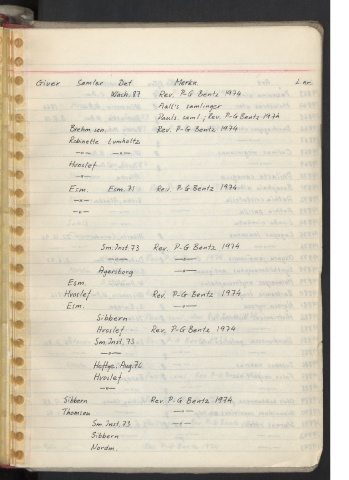 Giver Samler Det. Merkn L.nr.
Wach. 87 Rev. P-G Bentz 1974
Aall's samlinger
Pauls saml.; Rev. P-G Bentz 1974
Brehm sen. Rev. P-G Bentz 1974
Robinette Lumholtz
—"— —"—
Hvoslef
Esm. Esm. 71 Rev. P-G Bentz 1974
—"—
—"—
Sm. Inst. 73 Rev. P-G Bentz 1974
—"— —"—
Agersborg —"—
Esm.
Hvoslef Rev. P-G Bentz 1974
Esm. —"—
Sibbern
Hvoslef Rev. P-G Bentz 1974
Sm. Inst. 73
—"—
Aug. 76
Hvoslef
—"—
Sibbern Rev P-G Bentz 1974
Thomsen —"—
Sm Inst. 73 —"—
Sibbern
Nordm.